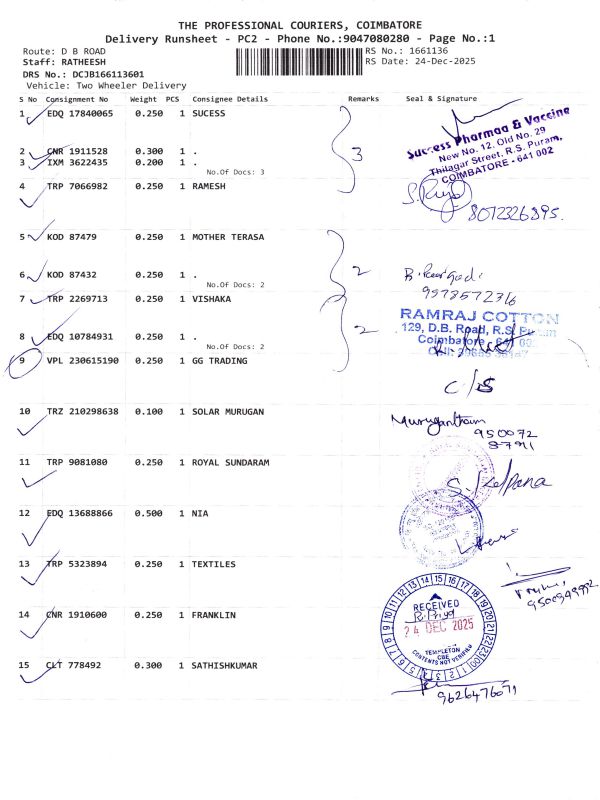 THE PROFESSIONAL COURIERS, COIMBATORE
Delivery Runsheet - PC2 - Phone No.:9047080280 - Page No.:1
Route: D B ROAD
Staff: RATHEESH
DRS No.: DCJB166113601
Vehicle: Two Wheeler Delivery
RS No.: 1661136
RS Date: 24-Dec-2025
S No Consignment No Weight PCS Consignee Details Remarks Seal & Signature
1 EDQ 17840065 0.250 1 SUCESS
2 CNR 1911528 0.300 1 .
3 IXM 3622435 0.200 1 .
No.Of Docs: 3
3
Success Pharmaa & Vaccine
New No. 12, Old No. 29
Thilagar Street, R.S. Puram,
COIMBATORE - 641 002
4 TRP 7066982 0.250 1 RAMESH
8072326895.
5 KOD 87479 0.250 1 MOTHER TERASA
6 KOD 87432 0.250 1 .
No.Of Docs: 2
2
9578572316
7 TRP 2269713 0.250 1 VISHAKA
8 EDQ 10784931 0.250 1 .
No.Of Docs: 2
2
RAMRAJ COTTON
129, D.B. Road, R.S. Puram
Coimbatore - 641 00
9 VPL 230615190 0.250 1 GG TRADING
C/S
10 TRZ 210298638 0.100 1 SOLAR MURUGAN
Murugantham
950072
8791
11 TRP 9081080 0.250 1 ROYAL SUNDARAM
S. Kalpana
12 EDQ 13688866 0.500 1 NIA
13 TRP 5323894 0.250 1 TEXTILES
9500949992
14 CNR 1910600 0.250 1 FRANKLIN
RECEIVED
R. Priya
24 DEC 2025
TEMPLETON
CBE
CONTENTS NOT VERIFIED
15 CLT 778492 0.300 1 SATHISHKUMAR
9626476071